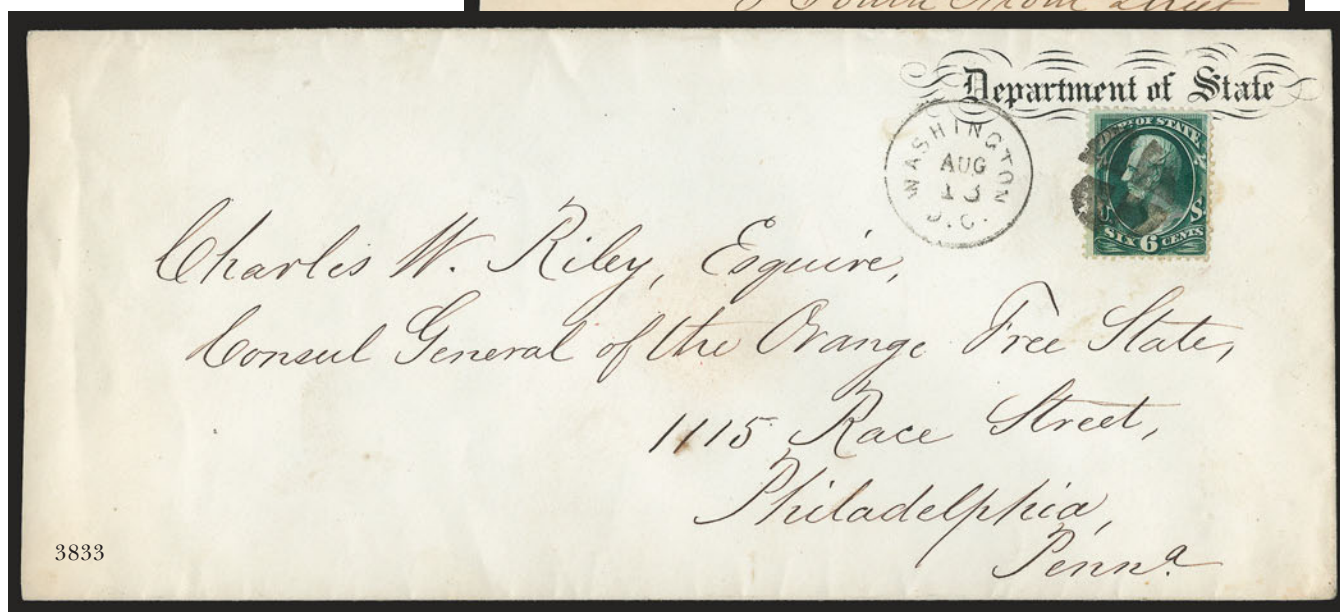 South Front Street
Department of State
WASHINGTON
AUG
13
D.C.
DEPT. OF STATE
U. S.
SIX 6 CENTS
Charles W. Riley, Esquire,
Consul General of the Orange Free State,
1115 Race Street,
Philadelphia,
Penna.
3833